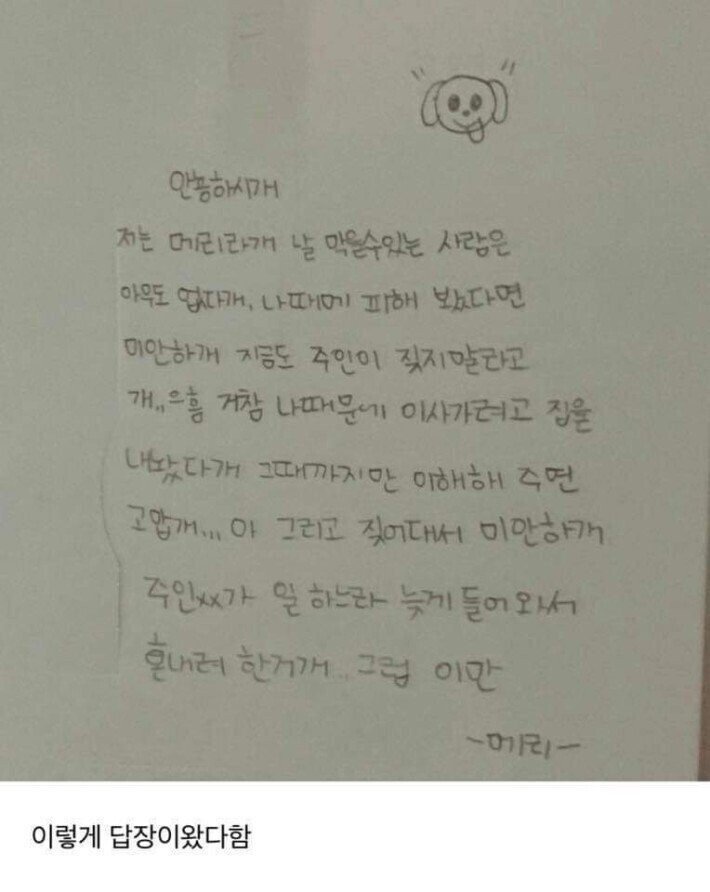 안뇽하시개
저는 메리라개 날 막을수있는 사람은
아무도 업다개, 나때메 피해 보놨다면
미안하개 지금도 주인이 짖지말라고
개,,으흠 거참 나때문에 이사가려고 집을
내놨다개 그때까지만 이해해 주면
고맙개... 아 그리고 짖어대서 미안하개
주인xx가 일 하느라 늦게 들어와서
혼내려 한거개.. 그럼 이만
-메리-
이렇게 답장이왔다함